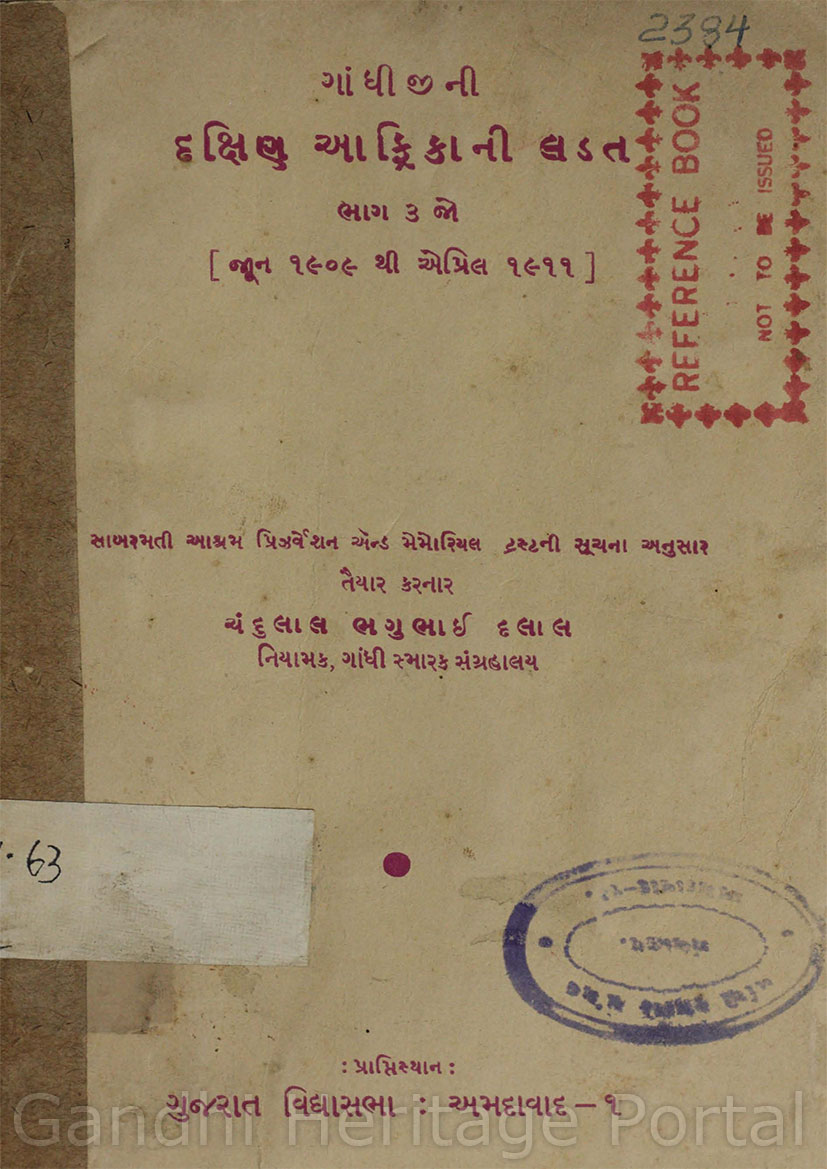 2384
ગાંધીજીની
દક્ષિણ આફ્રિકાની લડત
ભાગ ૩ જો
[ જૂન ૧૯૦૯ થી એપ્રિલ ૧૯૧૧ ]
REFERENCE BOOK
NOT TO BE ISSUED
સાબરમતી આશ્રમ પ્રિઝર્વેશન ઍન્ડ મેમોરિયલ ટ્રસ્ટની સૂચના અનુસાર
તૈયાર કરનાર
ચંદુલાલ ભગુભાઈ દલાલ
નિયામક, ગાંધી સ્મારક સંગ્રહાલય
63
: પ્રાપ્તિસ્થાન :
ગુજરાત વિદ્યાસભા : અમદાવાદ – ૧
Gandhi Heritage Portal